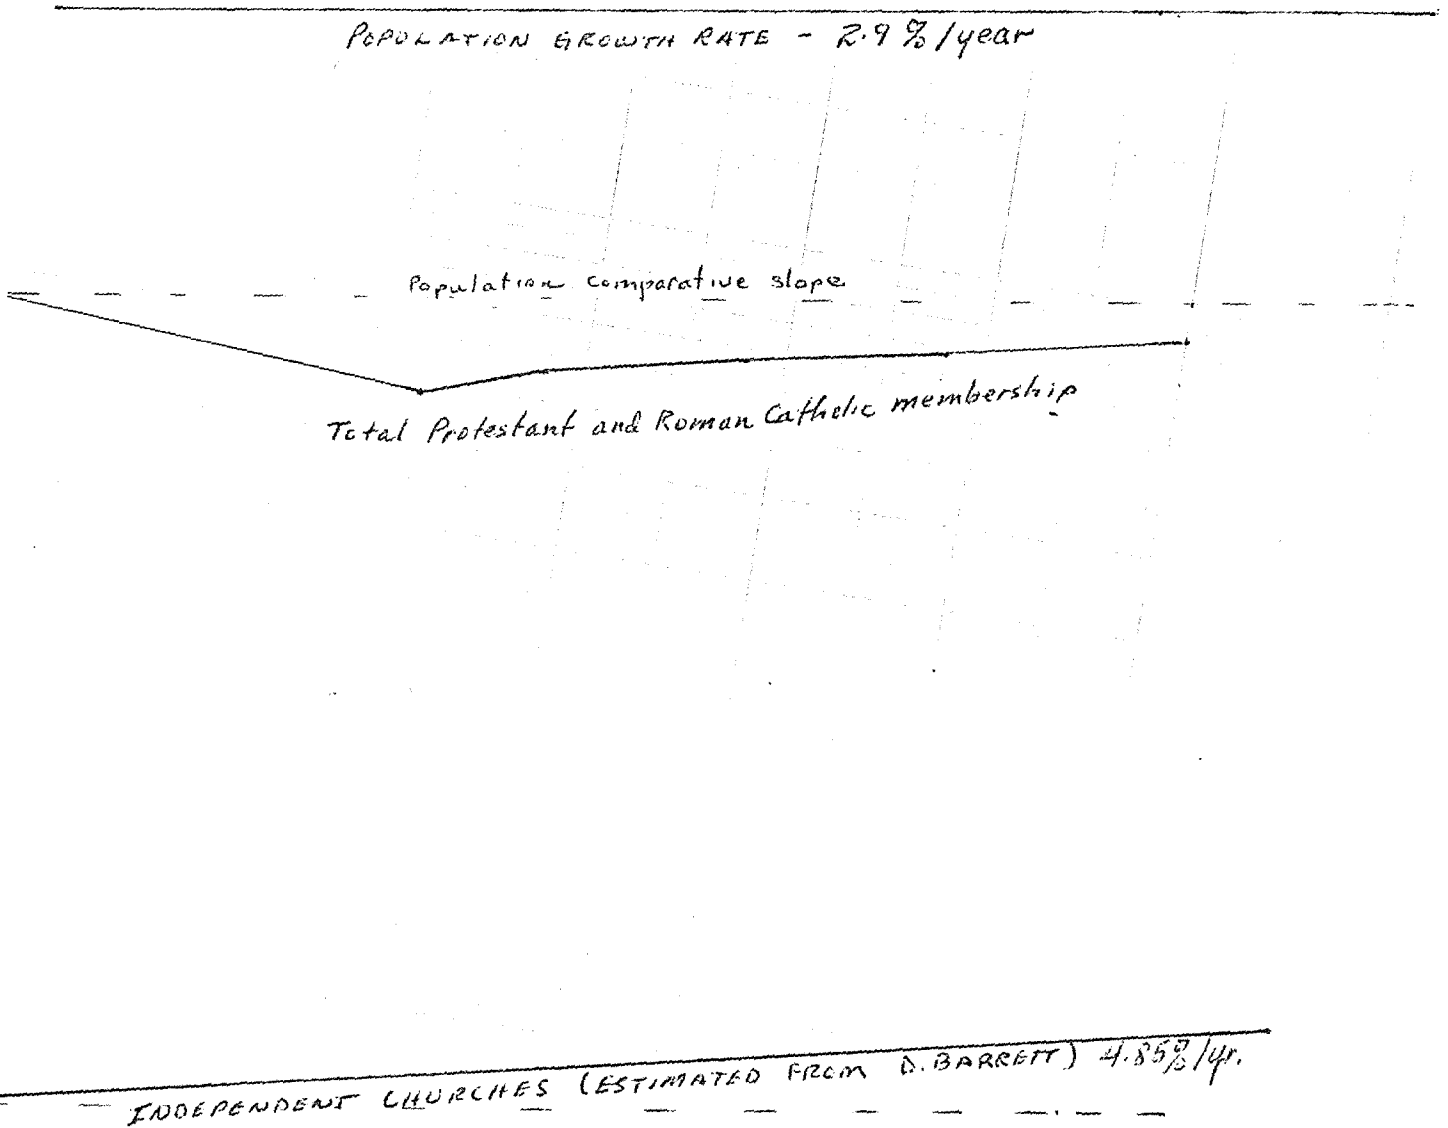 POPULATION GROWTH RATE - 2.9 % / year
Population comparative slope
Total Protestant and Roman Catholic membership
INDEPENDENT CHURCHES (ESTIMATED FROM D. BARRETT) 4.85% / yr.